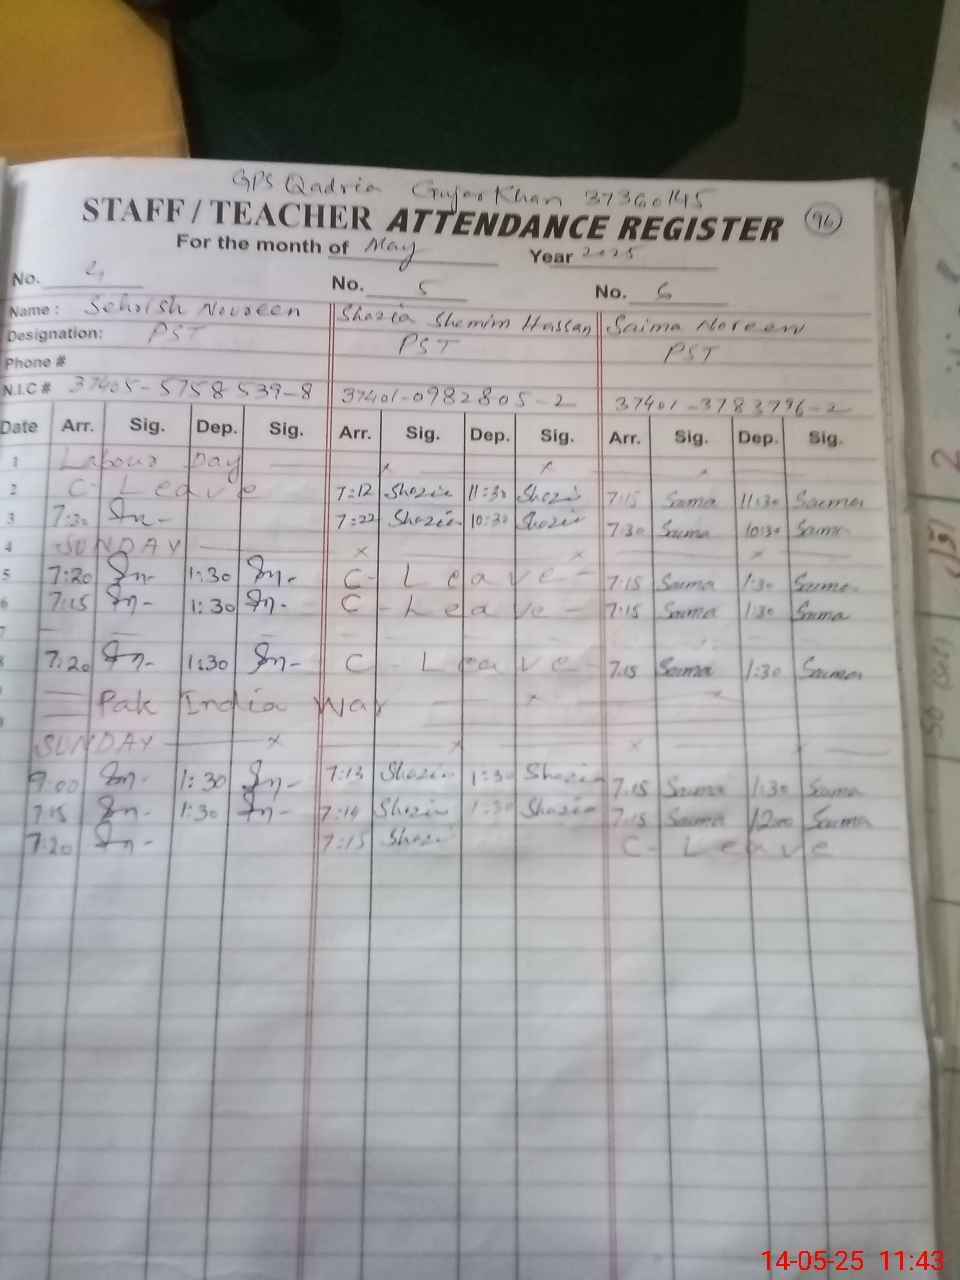 GPS Qadria Gujar Khan 37360145
STAFF / TEACHER ATTENDANCE REGISTER 96
For the month of May Year 2025
No. 4 No. 5 No. 6
Name : Sehrish Noureen Shazia Shemim Hassan Saima Noreen
Designation: PST PST PST
Phone #
N.I.C # 37405-5758539-8 37401-0982805-2 37401-3783796-2
Date Arr. Sig. Dep. Sig. Arr. Sig. Dep. Sig. Arr. Sig. Dep. Sig.
1 Labour Day x x x
2 C- Leave 7:12 Shazia 11:30 Shazia 7:15 Saima 11:30 Saima
3 7:20 Sn- 7:22 Shazia 10:30 Shazia 7:30 Saima 10:30 Saima
4 SUNDAY x x x
5 7:20 Sn- 1:30 Sn- C- Leave - 7:15 Saima 1:30 Saima
6 7:15 Sn- 1:30 Sn- C - Leave - 7:15 Saima 1:30 Saima
7
8 7:20 Sn- 1:30 Sn- C - Leave - 7:15 Saima 1:30 Saima
Pak India War x x
SUNDAY x x x
9:00 Sn- 1:30 Sn- 7:13 Shazia 1:30 Shazia 7:15 Saima 1:30 Saima
7:15 Sn- 1:30 Sn- 7:14 Shazia 1:30 Shazia 7:15 Saima 12:00 Saima
7:20 Sn- 7:15 Shazia C- Leave
14-05-25 11:43